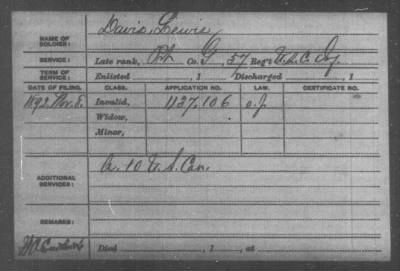 Davis, Lewis
NAME OF SOLDIER:
SERVICE: Late rank, Pvt Co. G, 57 Reg't U.S.C. Inf.
TERM OF SERVICE: Enlisted , 1 Discharged , 1
DATE OF FILING. CLASS. APPLICATION NO. LAW. CERTIFICATE NO.
1892 Nov. 5. Invalid, 1137,106
Widow,
Minor,
A. 10 U.S. Cav.
ADDITIONAL SERVICES:
REMARKS:
Died , 1 , at